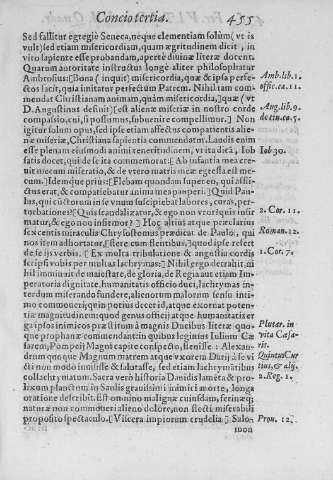 Concio tertia. 455
Sed fallitur egregiè Seneca, neque clementiam solùm (vt is
vult) sed etiam misericordiam, quam ægritudinem dicit, in
vito sapiente esse probandam, apertè diuinæ literæ docent.
Quarum autoritate instructus longè aliter philosophatur
Ambrosius: [Bona (inquit) misericordia, quæ & ipsa perfe-
ctos facit, quia imitatur perfectum Patrem. Nihil tam com-
mendat Christianam animam, quàm misericordia,] quæ (vt
D. Augustinus definit) [est alienæ miseriæ in nostro corde
compassio, cui, si possumus, subuenire compellimur.] Non
igitur solum opus, sed ipse etiam affectus compatientis alie-
næ miseriæ, Christiana sapientia commendatur. Laudis enim
esse plenam eiusmodi animi teneritudinem, vt ita dicā, Iob
satis docet, qui de se ita commemorat: [Ab infantia mea cre-
uit mecum miseratio, & de vtero matris meæ egressa est me-
cum.] Idemque priùs: [Flebam quondam super eo, qui affli-
ctus erat, & compatiebatur anima mea pauperi.] Quid Pau-
lus, qui cunctorum in se vnum suscipiebat labores, curas, per-
turbationes? [Quis scandalizatur, & ego non vror: quis infir-
matur, & ego non infirmor?] Hoc altiùs quàm præclariùs
sexcentis in maculis Chrysostomus prædicat de Paulo, qui
nos item adhortatur, [flere cum flentibus,] quod ipse refert
de se ijs verbis. [Ex multa tribulatione & angustia cordis
scripsi vobis per multas lachrymas:] Nihil ergo detrahit, ni-
hil imminuit de maiestate, de gloria, de Regia aut etiam Im-
peratoria dignitate, humanitatis officio duci, lachrymas in-
terdum miserando fundere, alienorum malorum sensu inti-
mo commoueri, quin potiùs decet id, atque exornat poten-
tiæ magnitudinem: quod genus officij atque humanitatis er-
ga ipsos inimicos præstitum à magnis Ducibus literæ quo-
que prophanæ commendant: in quibus legimus Iulium Cæ-
sarem, Pompeij Magni capite conspecto, fleuisse: Alexan-
drum quoque Magnum matrem atque vxorem Darij à se vi-
cti non modò inuisisse & solatasse, sed etiam lachrymabiles
collachrymatum. Sacra verò historia Dauidis laméta & pro-
lixum planctum in Saulis gratissimi inimici morte, longa
oratione describit. Est omnino malignæ cuiusdam, ferinæq;
naturæ non commoueri alieno dolore, non flecti miserabili
proposito spectaculo. [Viscera impiorum crudelia:] Salo-
mon
Amb. lib. 1.
offic. ca. 11.
Aug. lib. 9.
de ciu. ca. 5.
Iob 30.
2. Cor. 11.
Roman. 12.
1. Cor. 7.
Plutar. in
vita Cæsa-
ris.
Quintus Cur
tius, & alij.
2. Reg. 1.
Prou. 12.